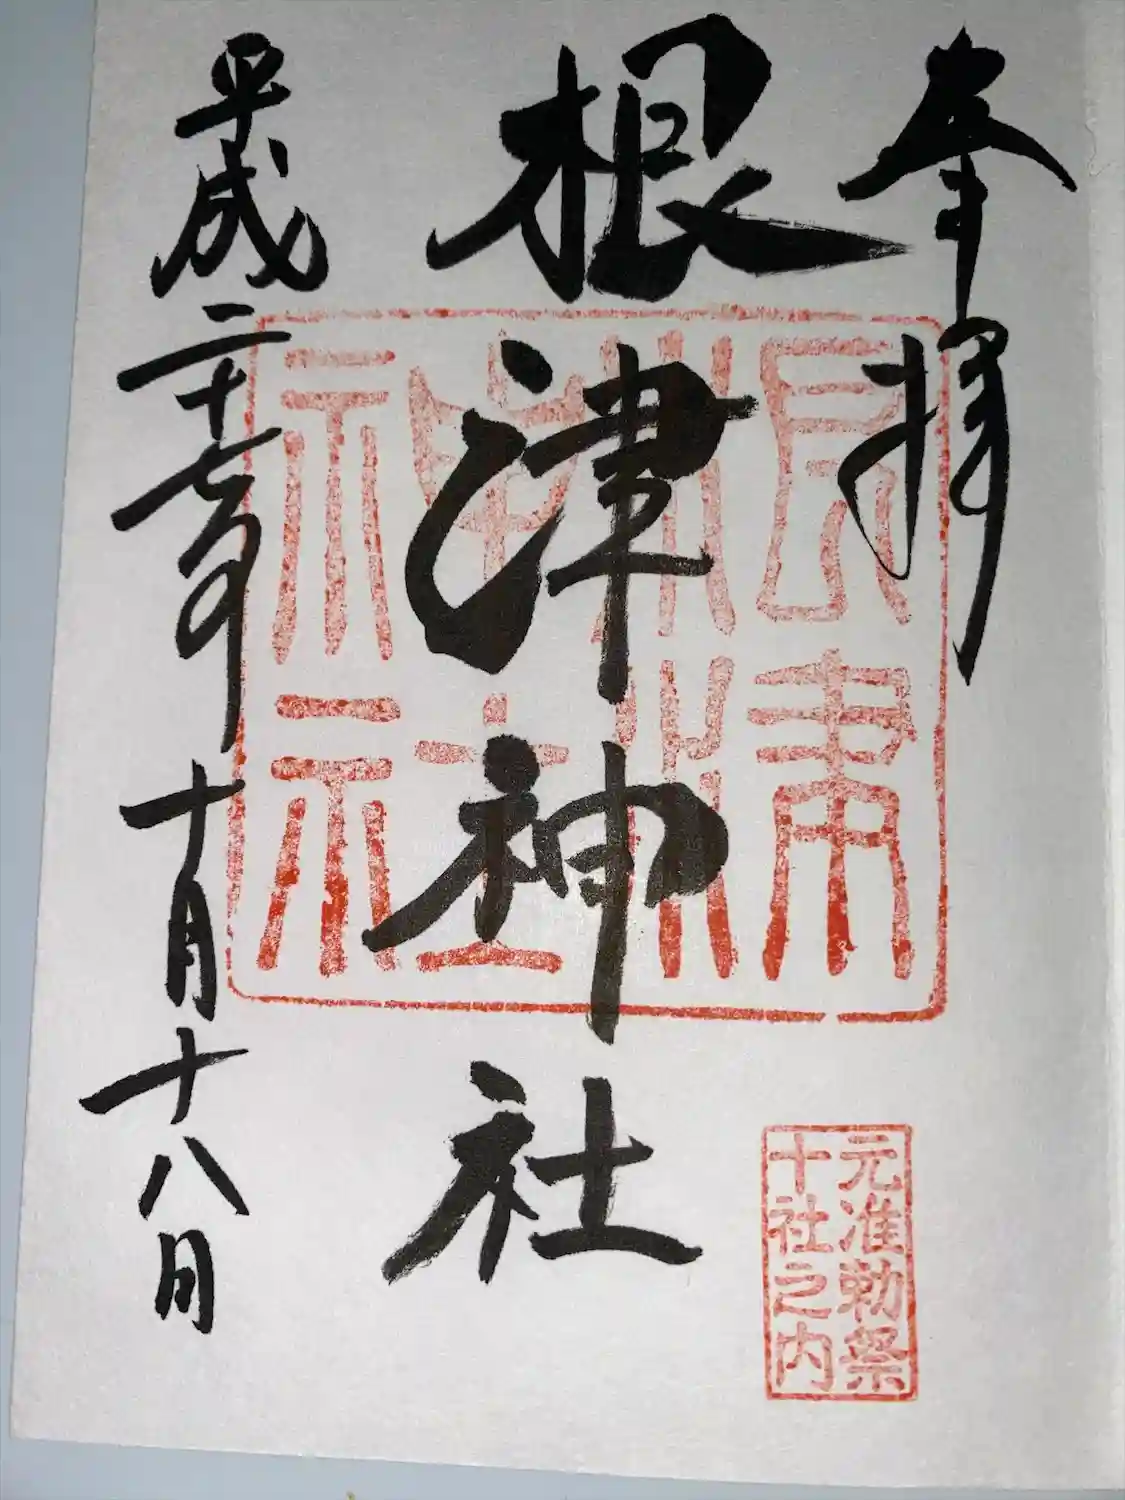 奉拝
根津神社
平成二十七年十月十八日
根津
神社
元准勅祭
十社之内